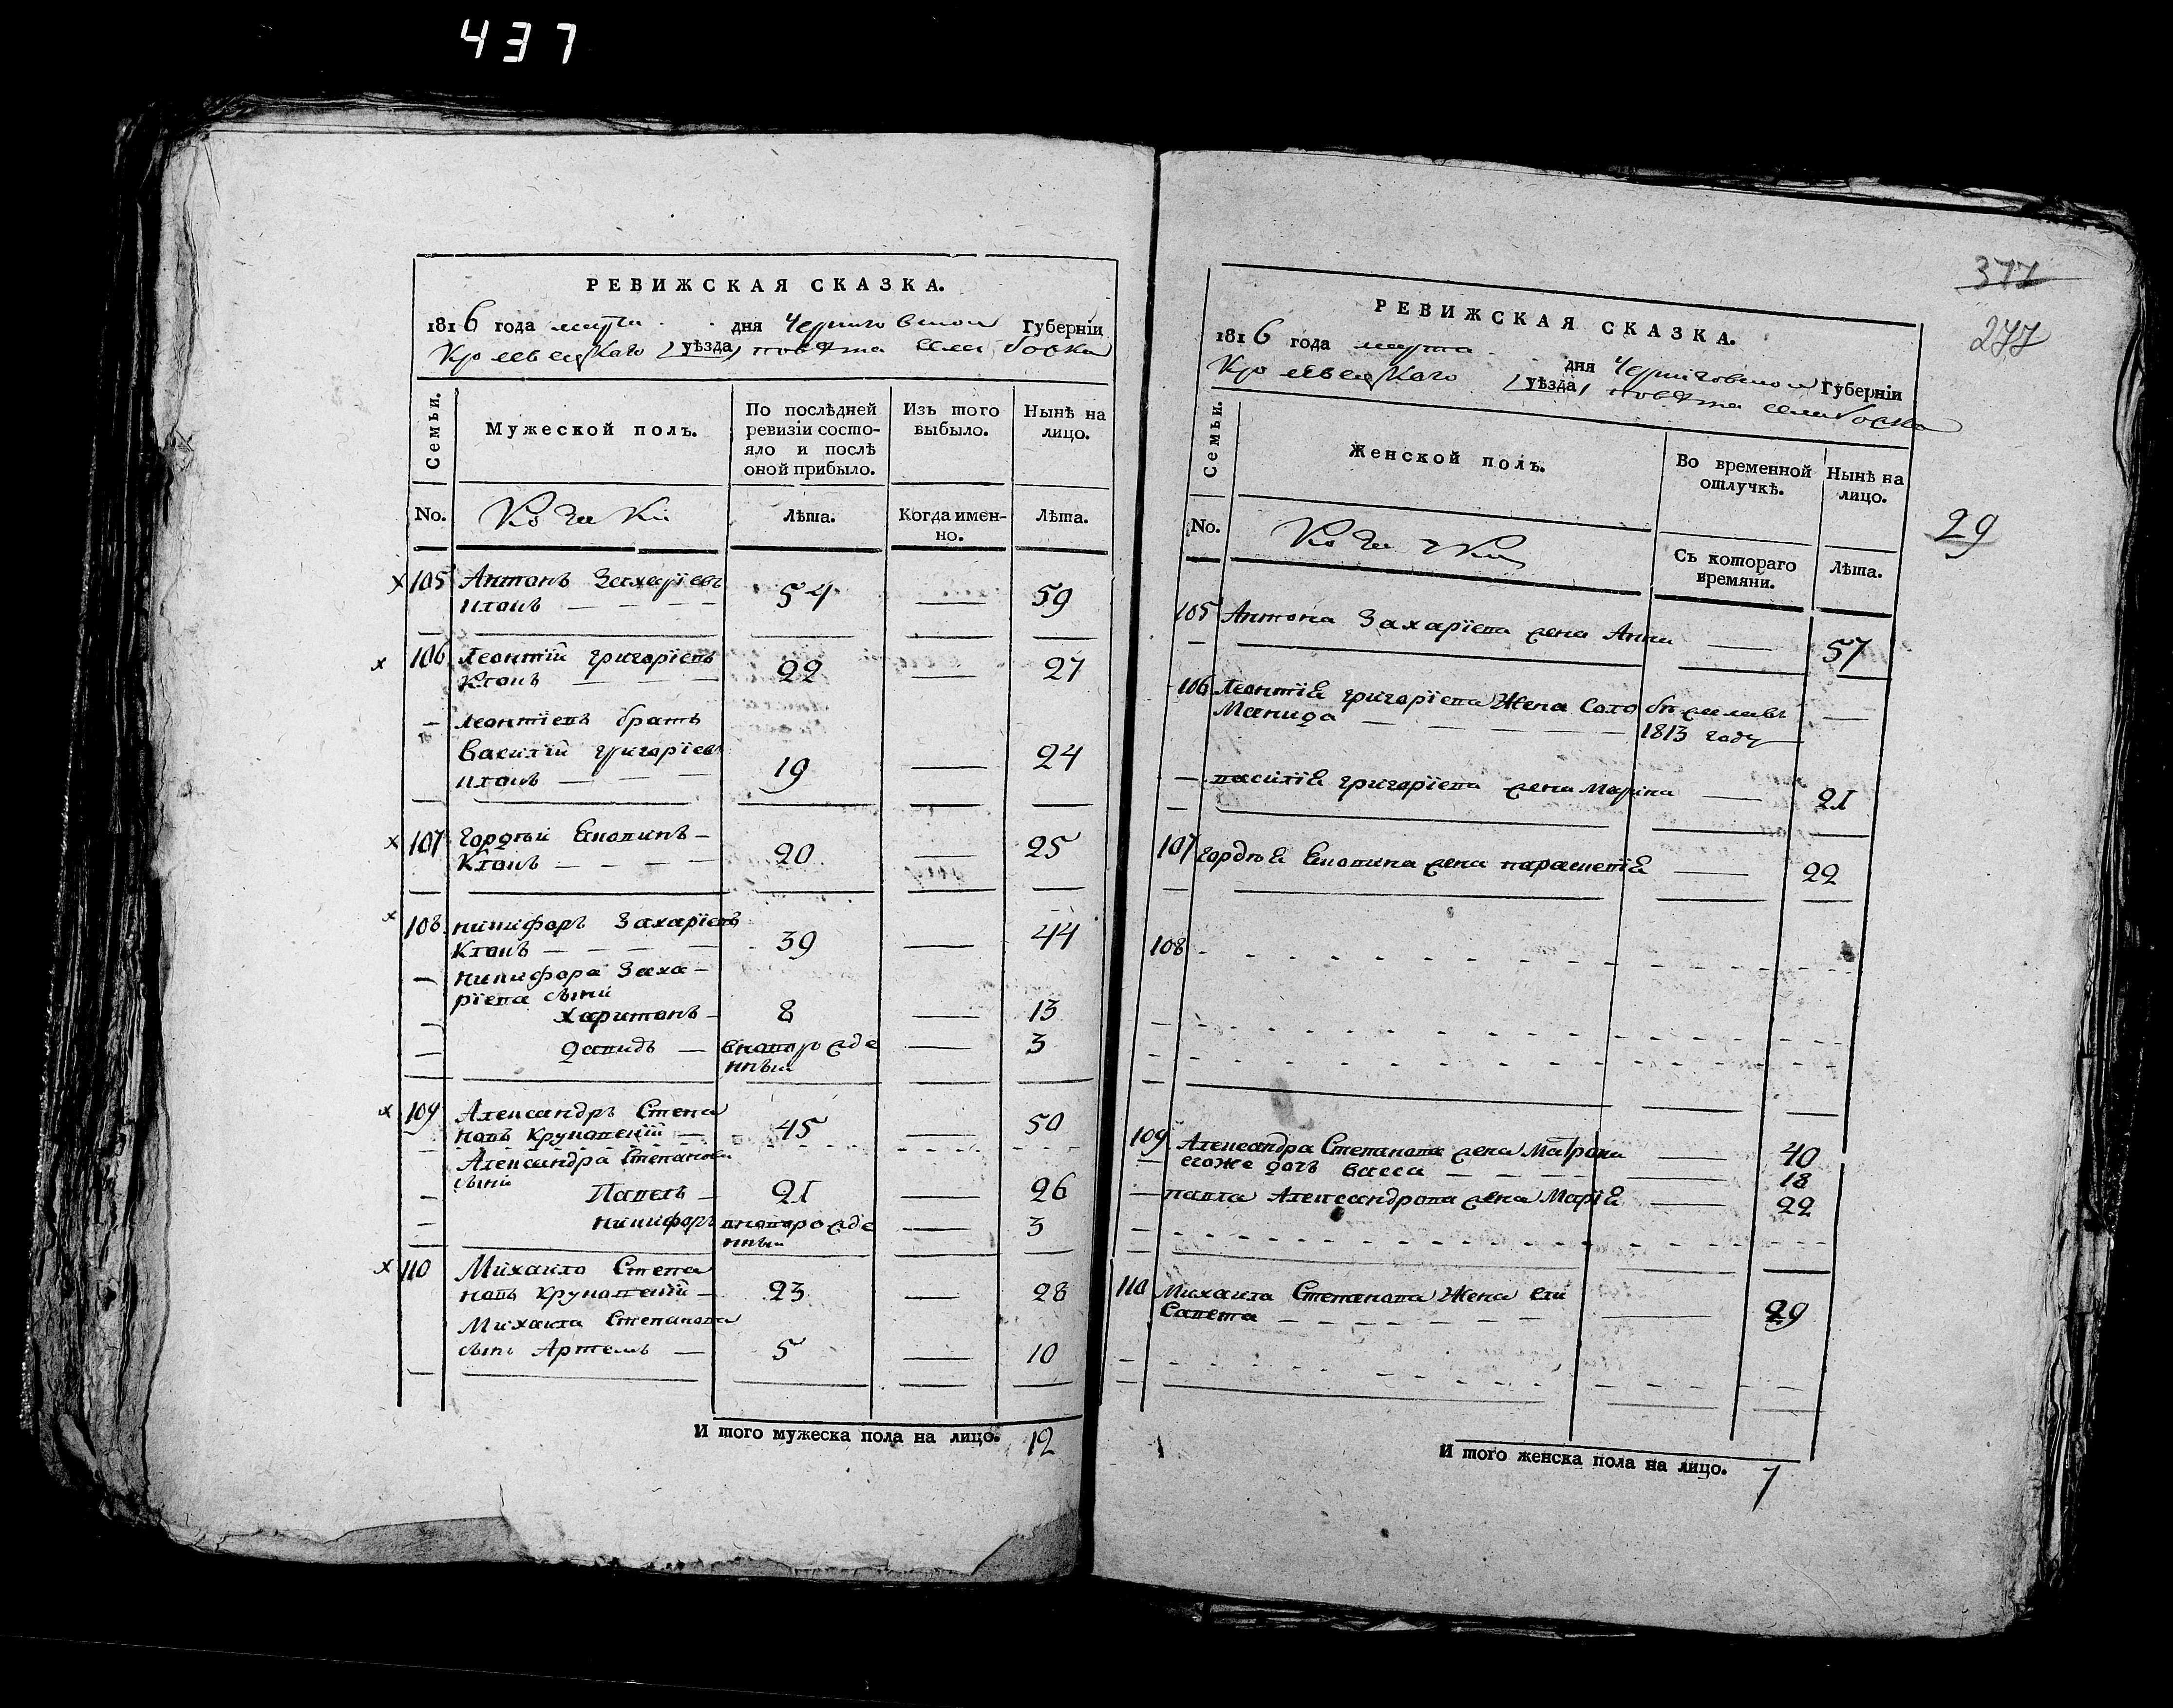 437
РЕВИЖСКАЯ СКАЗКА.
1816 года марта дня Черниговской Губерніи
Кролевецкаго (уѣзда) повѣта села
Семьи.
Мужеской полъ.
По послѣдней ревизіи состо-
яло и послѣ
оной прибыло.
Изъ того
выбыло.
Нынѣ на
лицо.
No.
Лѣта.
Когда имен-
но.
Лѣта.
х 105 Антонъ Захаріевъ
54 — 59
х 106 Леонтій григоріевъ
22 — 27
Леонтіевъ братъ
Василій григоріевъ
19 — 24
х 107 Гордѣй
20 — 25
х 108 никифоръ Захаріевъ
39 — 44
никифора Заха-
ріева сыни
Харитонъ 8 — 13
давидъ вновърожде — 3
нный
х 109 Александръ Степа
новъ Круповенко 45 — 50
Александра Степанова
сыни
Павелъ 21 — 26
никифоръ вноворожде — 3
нный
х 110 Михаило Степа
новъ 23 — 28
Михаила Степанова
сынъ Артемъ — 5 — 10
И того мужеска пола на лицо. 12
377
277
РЕВИЖСКАЯ СКАЗКА.
1816 года марта дня Черниговской Губерніи
Кролевецкаго (уѣзда) повѣта села
Семьи.
Женской полъ.
Во временной
отлучкѣ.
Нынѣ на
лицо.
29
No.
Съ котораго
времяни.
Лѣта.
105 Антона Захаріева жена Анна — 57
106 Леонтіа григоріева жена Соло —
Манида 1813 году
василіа григоріева жена Марина — 21
107 гордѣа жена параскевіа — 22
108
109 Александра Степанова жена Матрона — 40
егоже дочь Васса — 18
павла Александрова жена Маріа — 22
110 Михаила Степанова жена Ели
Савета — 29
И того женска пола на лицо. 7